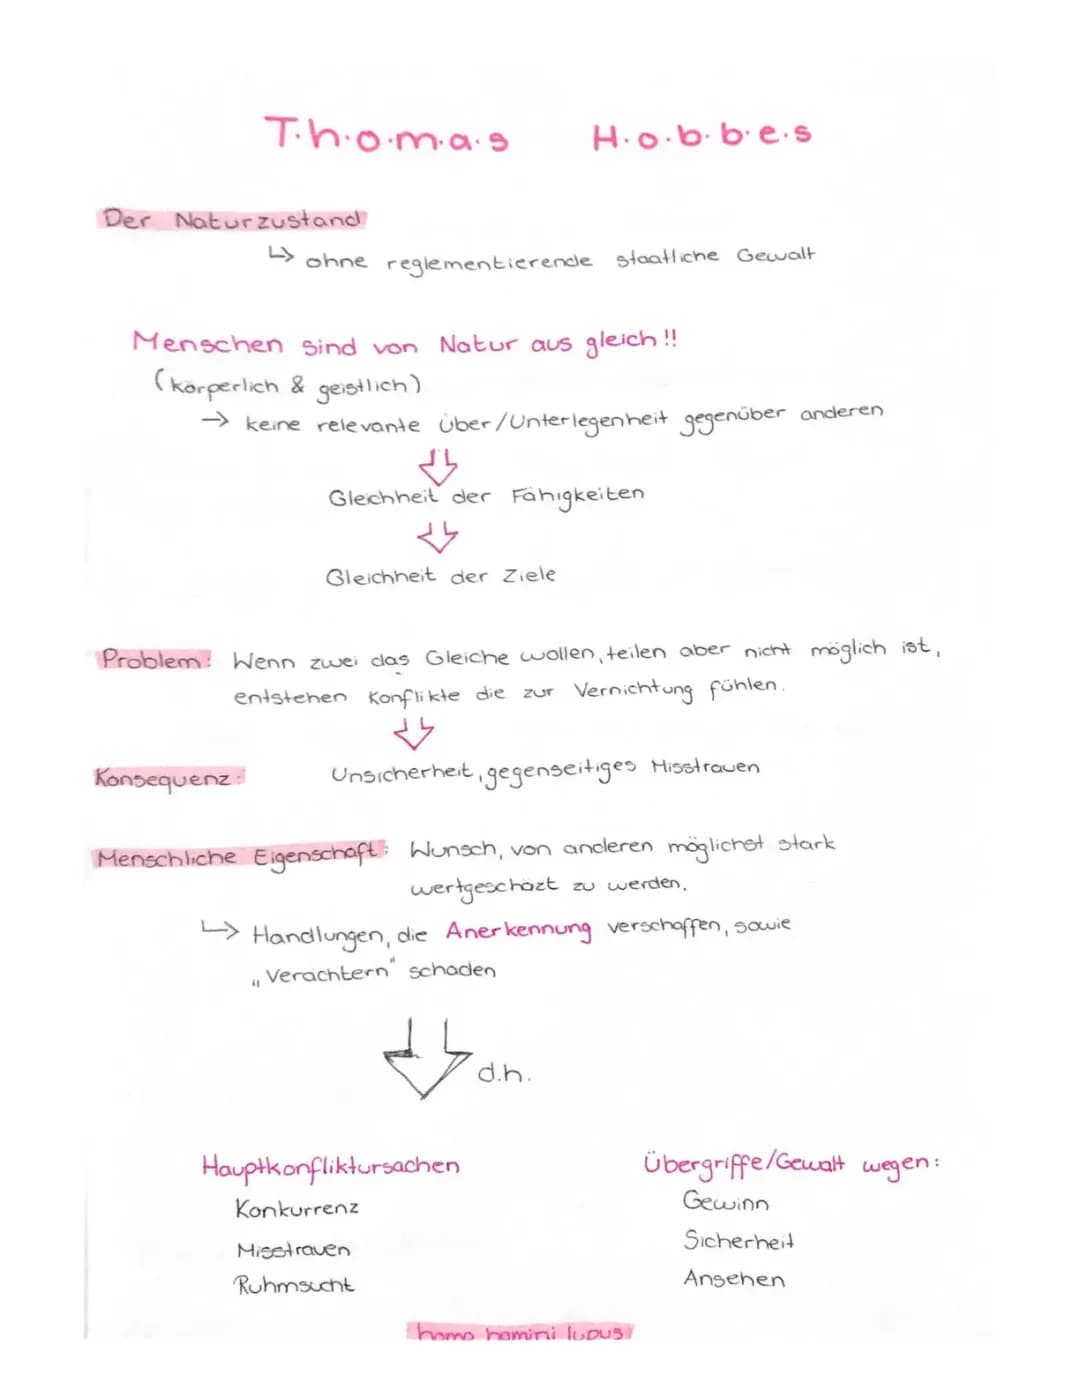 T.h.o.m.a.s H.o.b.b.e.s
Der Naturzustand
↳ ohne reglementierende staatliche Gewalt
Menschen sind von Natur aus gleich!!
(körperlich & geistlich)
→ keine relevante Über/Unterlegenheit gegenüber anderen
Gleichheit der Fähigkeiten
Gleichheit der Ziele
Problem: Wenn zwei das Gleiche wollen, teilen aber nicht möglich ist,
entstehen Konflikte die zur Vernichtung fühlen.
Konsequenz: Unsicherheit, gegenseitiges Misstrauen
Menschliche Eigenschaft: Wunsch, von anderen möglichst stark
wertgeschäzt zu werden.
↳ Handlungen, die Anerkennung verschaffen, sowie
„Verachtern" schaden
d.h.
Hauptkonfliktursachen Übergriffe/Gewalt wegen:
Konkurrenz Gewinn
Misstrauen Sicherheit
Ruhmsucht Ansehen
homo homini lupus